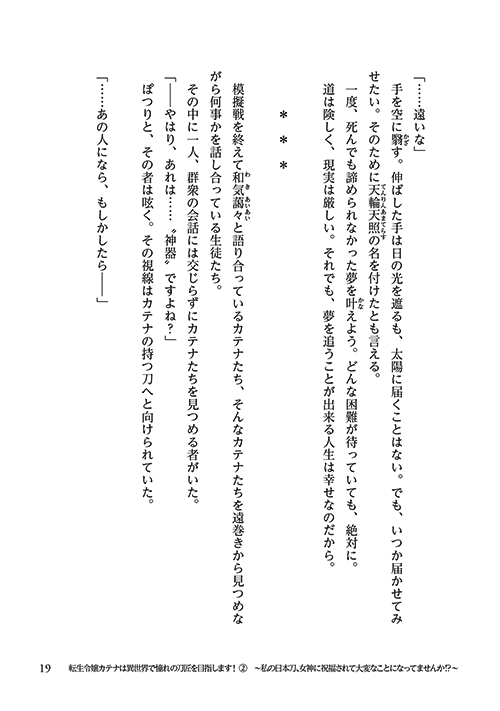 「……遠いな」
手を空に翳す。伸ばした手は日の光を遮るも、太陽に届くことはない。でも、いつか届かせてみ
せたい。そのために天輪天照の名を付けたとも言える。
一度、死んでも諦められなかった夢を叶えよう。どんな困難が待っていても、絶対に。
道は険しく、現実は厳しい。それでも、夢を追うことが出来る人生は幸せなのだから。
＊　＊　＊
模擬戦を終えて和気藹々と語り合っているカテナたち、そんなカテナたちを遠巻きから見つめな
がら何事かを話し合っている生徒たち。
その中に一人、群衆の会話には交じらずにカテナたちを見つめる者がいた。
「――やはり、あれは……〝神器〟ですよね？」
ぽつりと、その者は呟く。その視線はカテナの持つ刀へと向けられていた。
「……あの人になら、もしかしたら――」
19　転生令嬢カテナは異世界で憧れの刀匠を目指します！ ②　～私の日本刀、女神に祝福されて大変なことになってませんか!?～